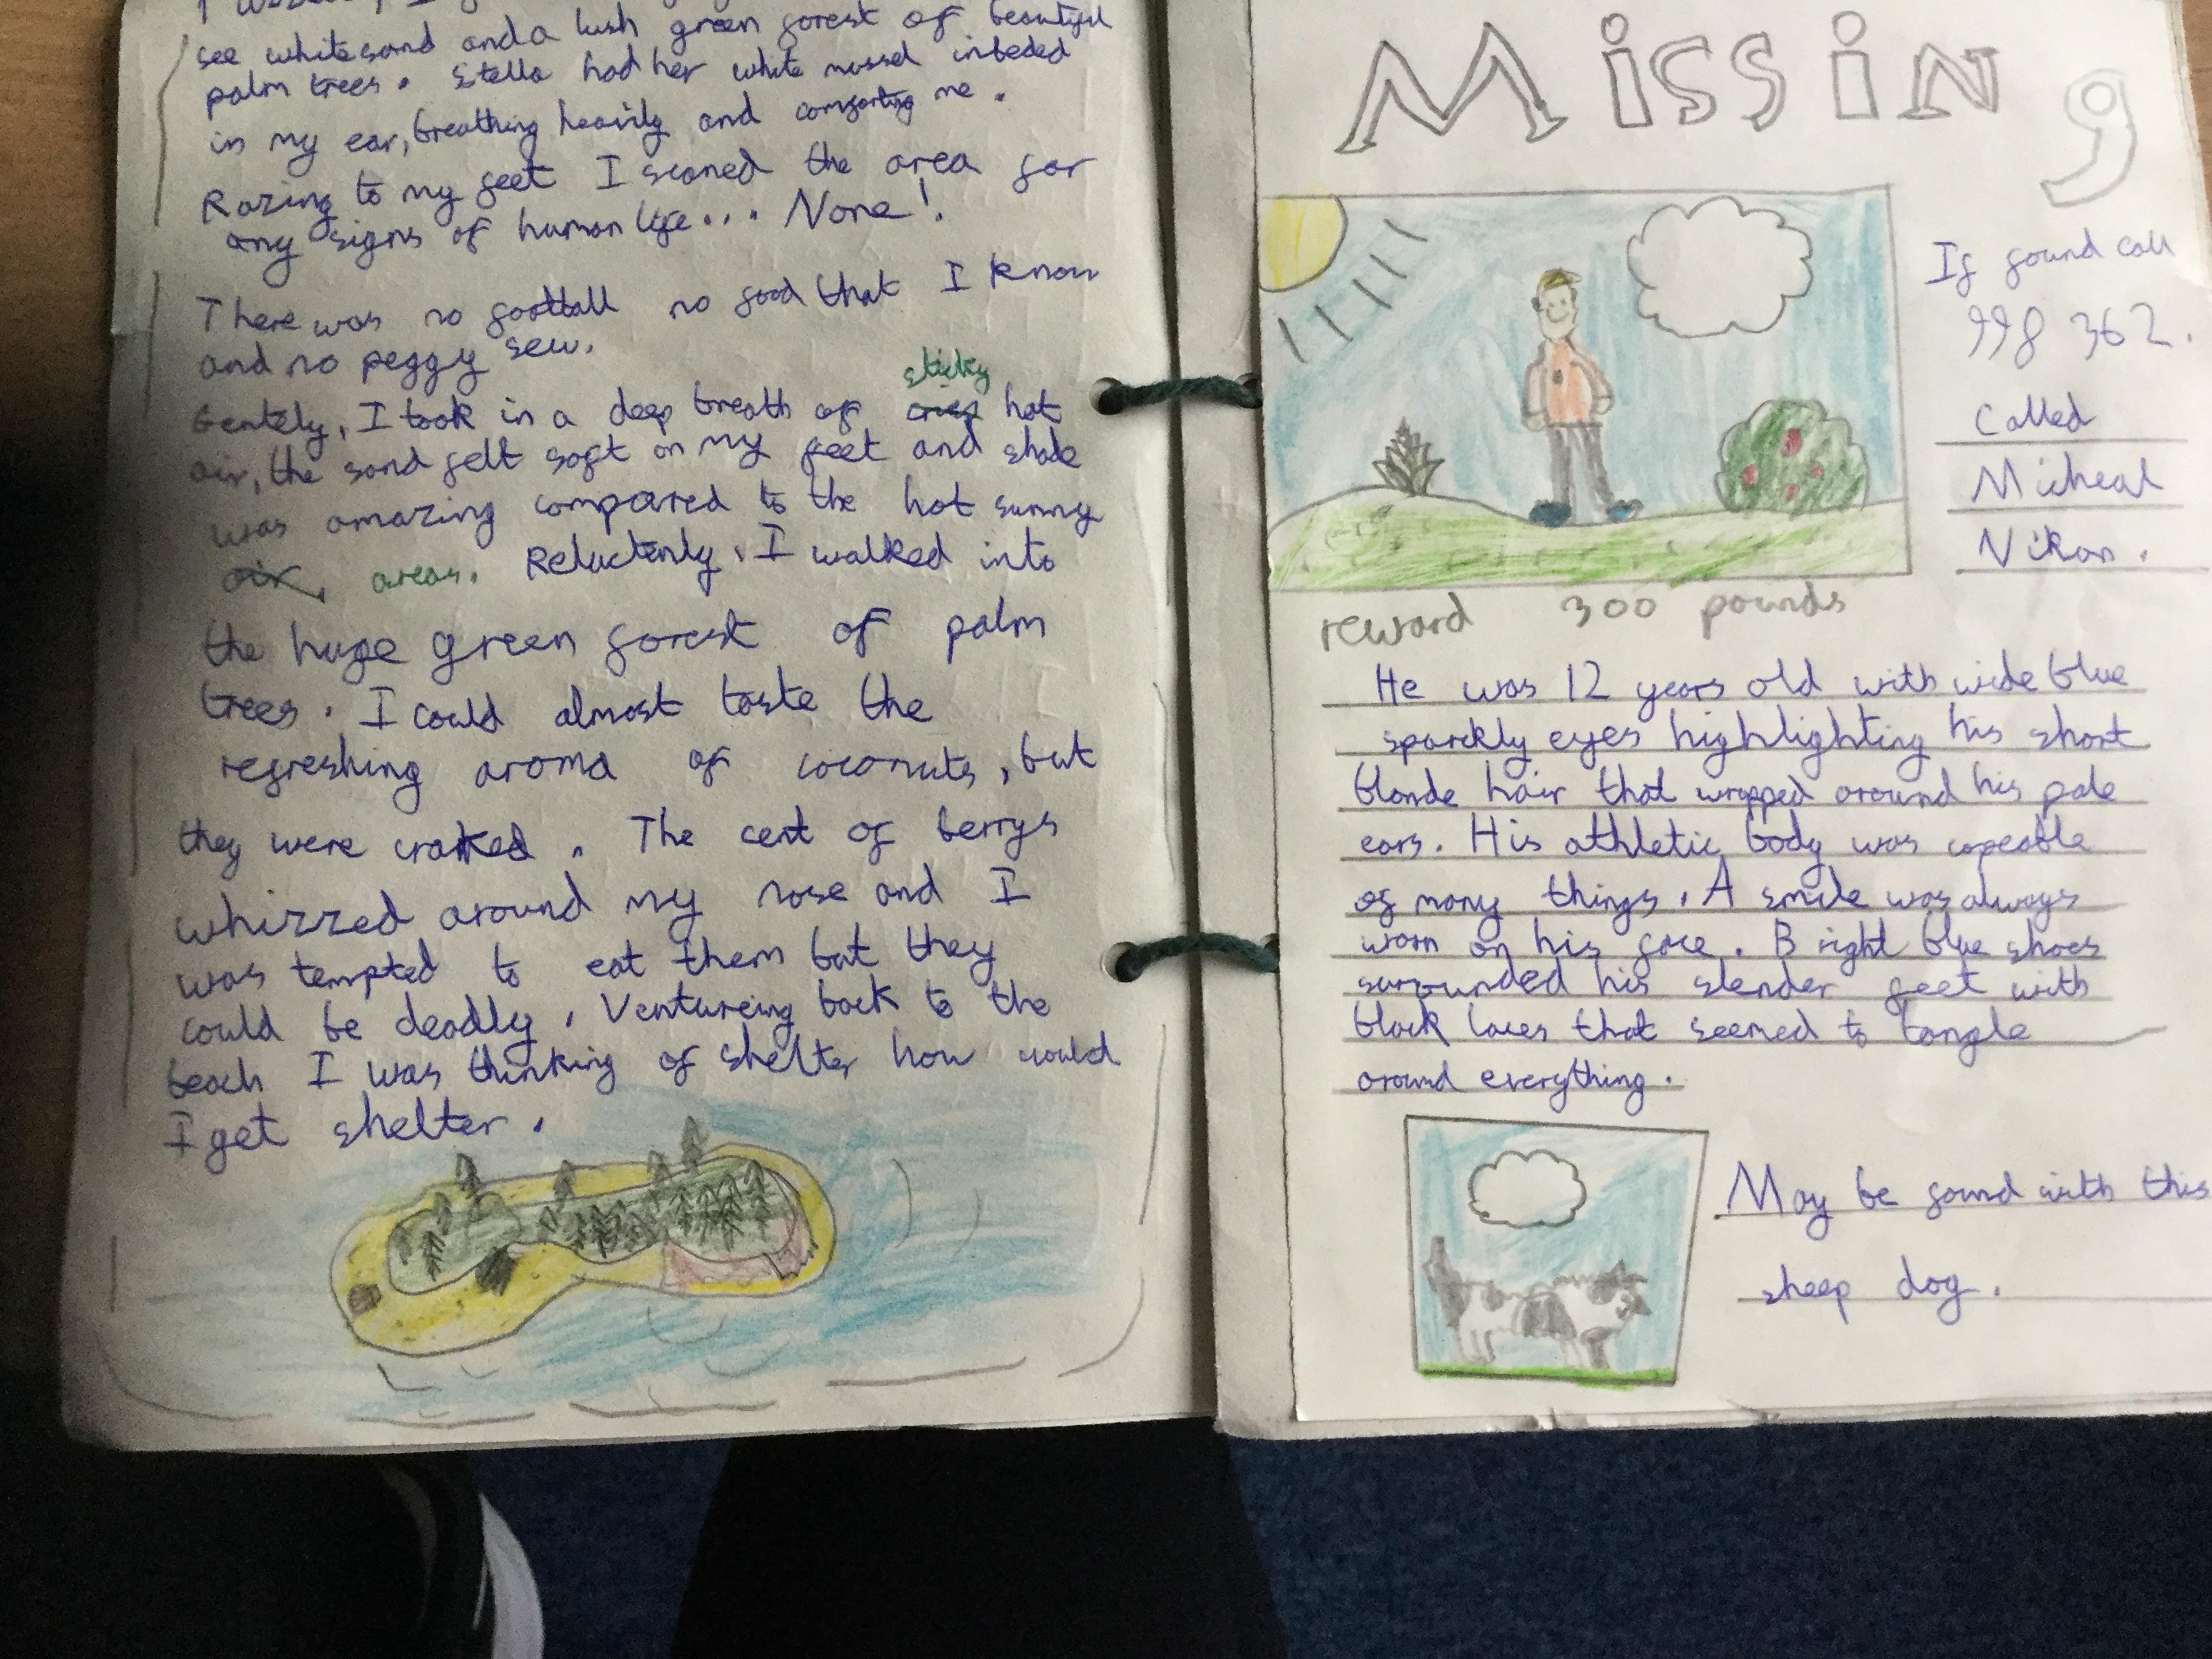 see white sand and a lush green forest of beautiful
palm trees. Stella had her white mussel inbeded
in my ear, breathing heavily and comforting me.
Razing to my feet I scaned the area for
any signs of human life... None!
There was no football no food that I know
and no peggy sew.
sticky
Gentely, I took in a deep breath of crisp hot
air, the sand felt soft on my feet and shade
was amazing compared to the hot sunny
air, areas. Reluctenly, I walked into
the huge green forest of palm
trees. I could almost taste the
refreshing aroma of coconuts, but
they were craked. The cent of berrys
whizzed around my nose and I
was tempted to eat them but they
could be deadly. Ventureing back to the
beach I was thinking of shelter how could
I get shelter.
Missing
If found call
998 362.
Called
Micheal
Nikon.
reward 300 pounds
He was 12 years old with wide blue
sparckly eyes highlighting his short
blonde hair that wrapped around his pale
ears. His athletic body was capeable
of many things. A smile was always
worn on his face. Bright blue shoes
surrounded his slender feet with
black laces that seemed to tangle
around everything.
May be found with this
sheep dog.